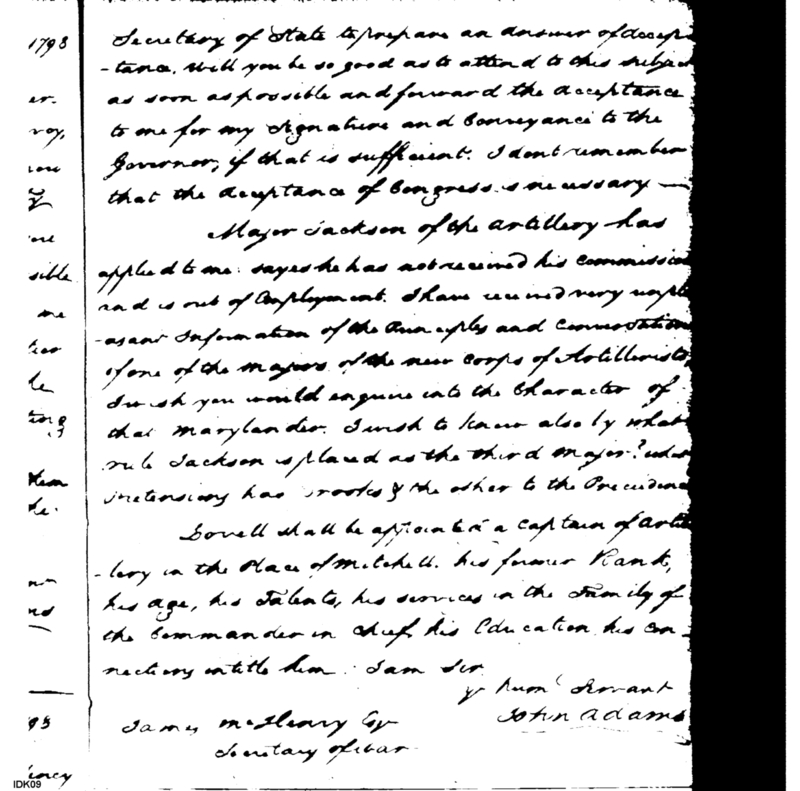 1798
er.
roy,
sible
me
le
ting
them
he.
nd
98
ency
Secretary of State to prepare an answer of accep
-tance. Will you be so good as to attend to this subject
as soon as possible and forward the acceptance
to me for my Signature and Conveyance to the
Governor, if that is sufficient. I dont remember
that the acceptance of Congress is necessary —
Major Jackson of the Artillery has
applied to me: sayes he has not received his commission
and is out of Employment. I have received very unple
-asant Information of the Principles and Conversation
of one of the majors of the new corps of Artillerists
I wish you would enquire into the Character of
that Marylander. I wish to know also by what
rule Jackson is placed as the third Major? what
pretensions has Brooks & the other to the Precedence
Lovell shall be appointed a Captain of Artil
-lery in the Place of Mitchell. his former Rank,
his age, his Talents, his services in the Family of
the Commander in Chief, his Education his con
nections intitle him. I am Sir
yr huml Servant
John Adams
James McHenry Esqr
Secretary of War.
IDK09